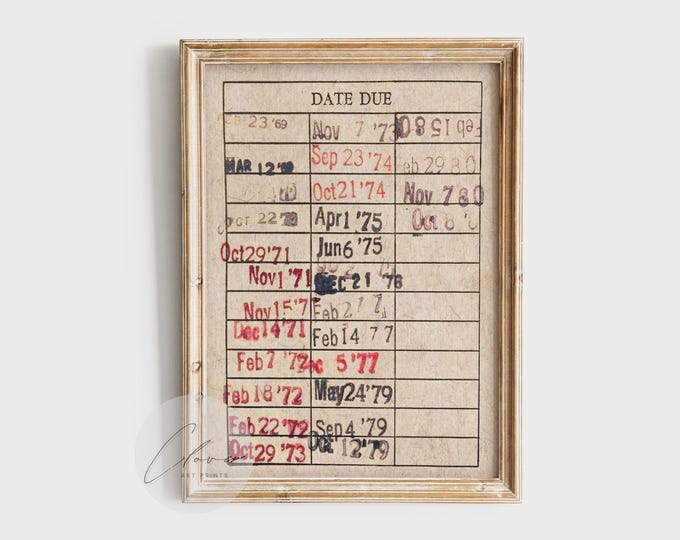 DATE DUE
23 '69
MAR 12 '69
22
Oct 29 '71
Nov 1 '71
Nov 15 '7
Dec 14 '71
Feb 7 '72
Feb 18 '72
Feb 22 '72
Oct 29 '73
Nov 7 '73
Sep 23 '74
Oct 21 '74
Apr 1 '75
Jun 6 '75
DEC 21 '76
Feb 2
Feb 14 77
Dec 5 '77
May 24 '79
Sep 4 '79
Oct 12 '79
Feb 15 80
eb 29 80
Nov 7 80
Oct 8
Clova
ART PRINTS